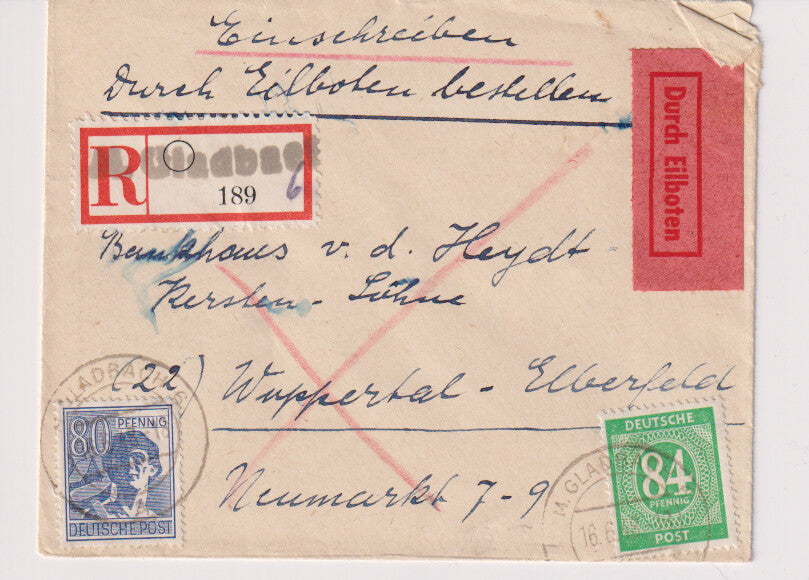 Einschreiben
Durch Eilboten bestellen
Durch Eilboten
R
Gladbach
189
6
Bankhaus v. d. Heydt-
Kersten-Söhne
(22) Wuppertal-Elberfeld
Neumarkt 7-9
GLADBACH
80 PFENNIG
DEUTSCHE POST
M. GLAD
16.6
DEUTSCHE
84
PFENNIG
POST